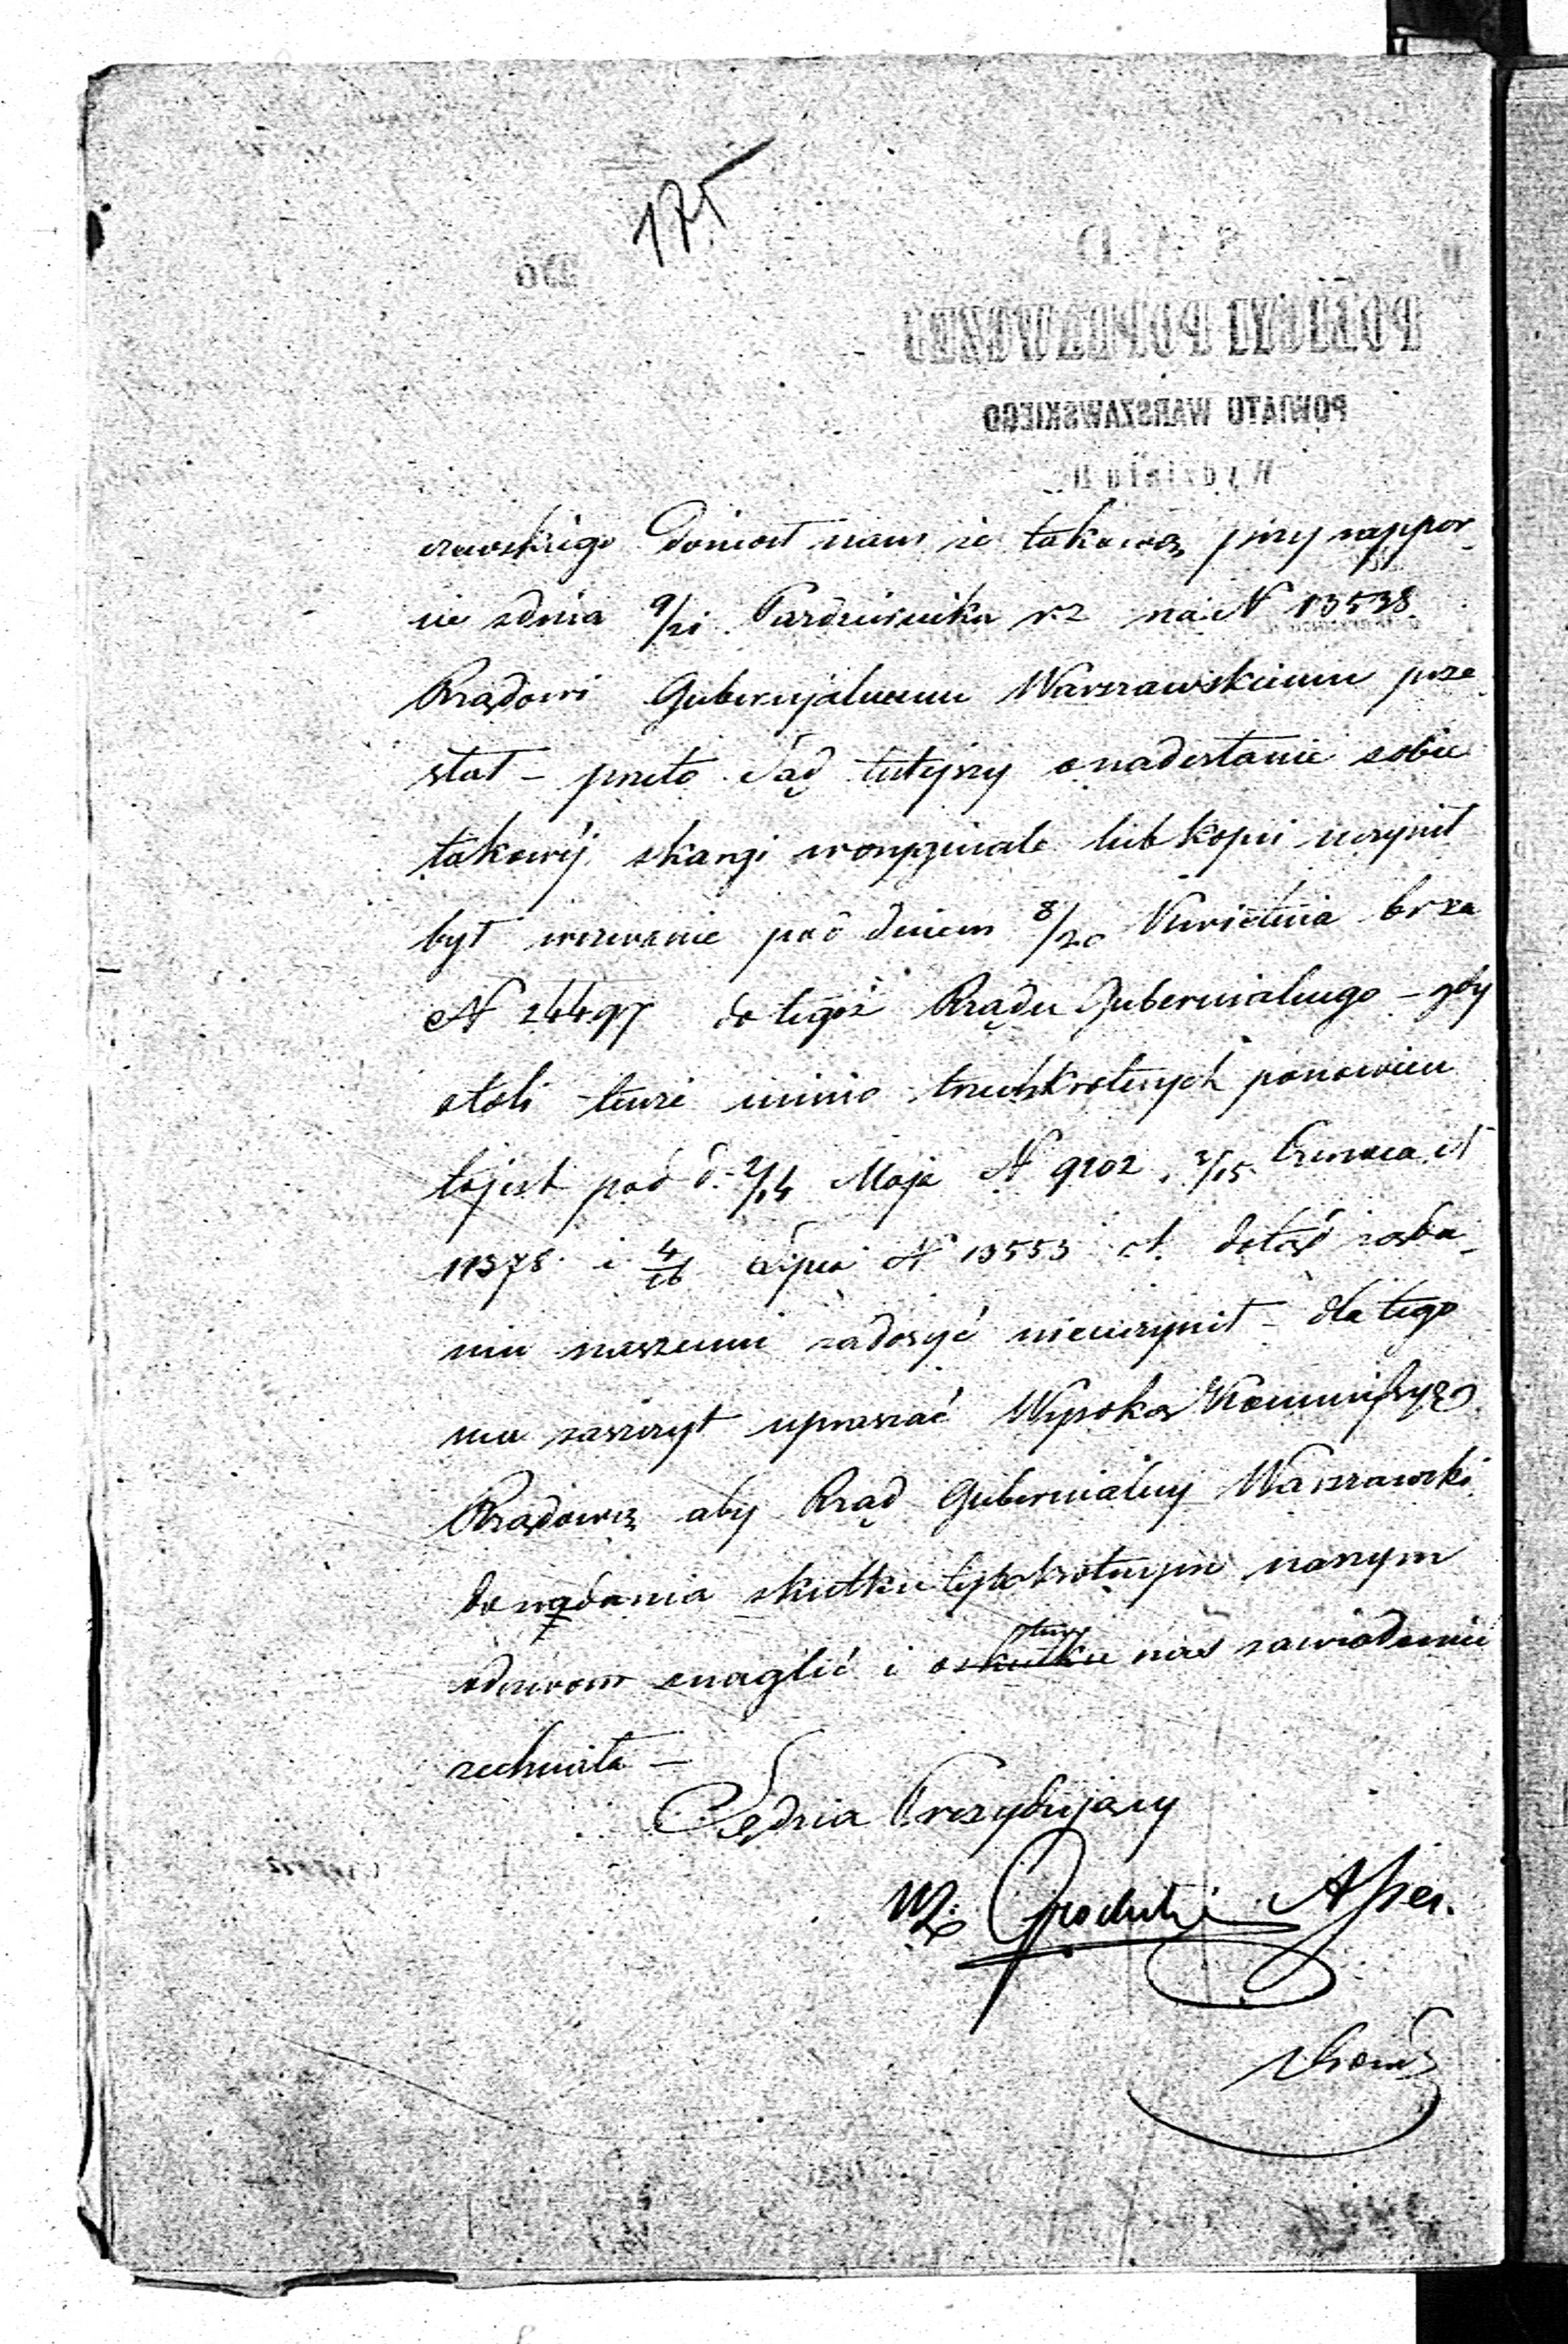 175
POLICYI POPRAWCZEJ
POWIATU WARSZAWSKIEGO
Wydział II
szawskiego doniosł nam że takową przy rappor¬
cie z dnia 9/21 Pazdziernika r z na N 13538
Rządowi Gubernjalnemu Warszawskiemu prze
słał – przeto Sąd tutejszy o nadesłanie sobie
takowéj skargi w oryginale lub kopii uczynił
był wezwanie pod dniem 8/20 Kwietnia b r za
N 24497 do tegoż Rządu Gubernialnego – gdy
atoli tenże mimo trzechkrotnych ponowień
to jest pod d. 2/14 Maja N 9202, 3/15 Czerwca N
11378 i 4/16 Lipca N 13553 dotąd żąda¬
niu naszemu zadosyć nieuczynił – dla tego
ma zaszczyt upraszać Wysoką Kommissyą
Rządową aby Rząd Gubernialny Warszawski
do nadania skutku tylokrotnym naszym
odezwom znaglić i o skutku nas zawiadomić
zechciała –
Sędzia Prezydujący
wz. Assess.